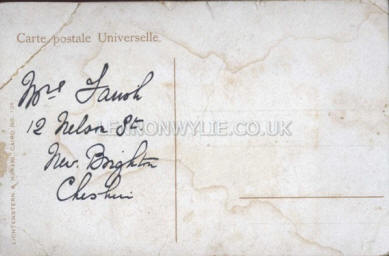 Carte postale Universelle.
Mrs
12 Nelson St
New. Brighton
Cheshire
LENNONWYLIE.CO.UK
LICHTENSTERN & HARARI, CAIRO NO.